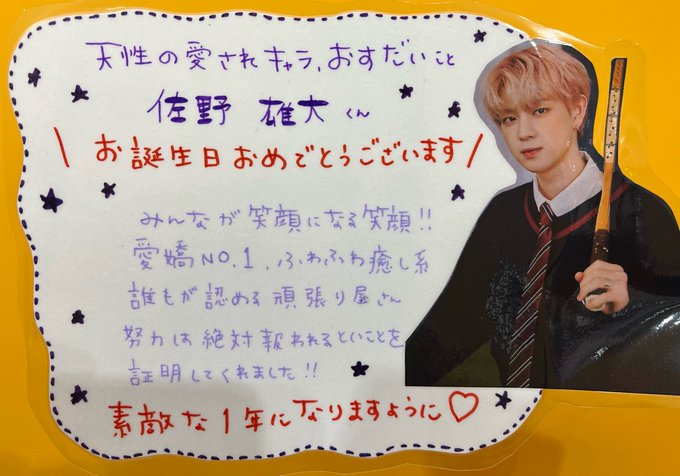 天性の愛されキャラ、おすだいこと
佐野 雄大くん
\ お誕生日おめでとうございます /
みんなが笑顔になる笑顔!!
愛嬌NO.1、ふわふわ癒し系
誰もが認める頑張り屋さん
努力は絶対報われるといことを
証明してくれました!!
素敵な1年になりますように♡